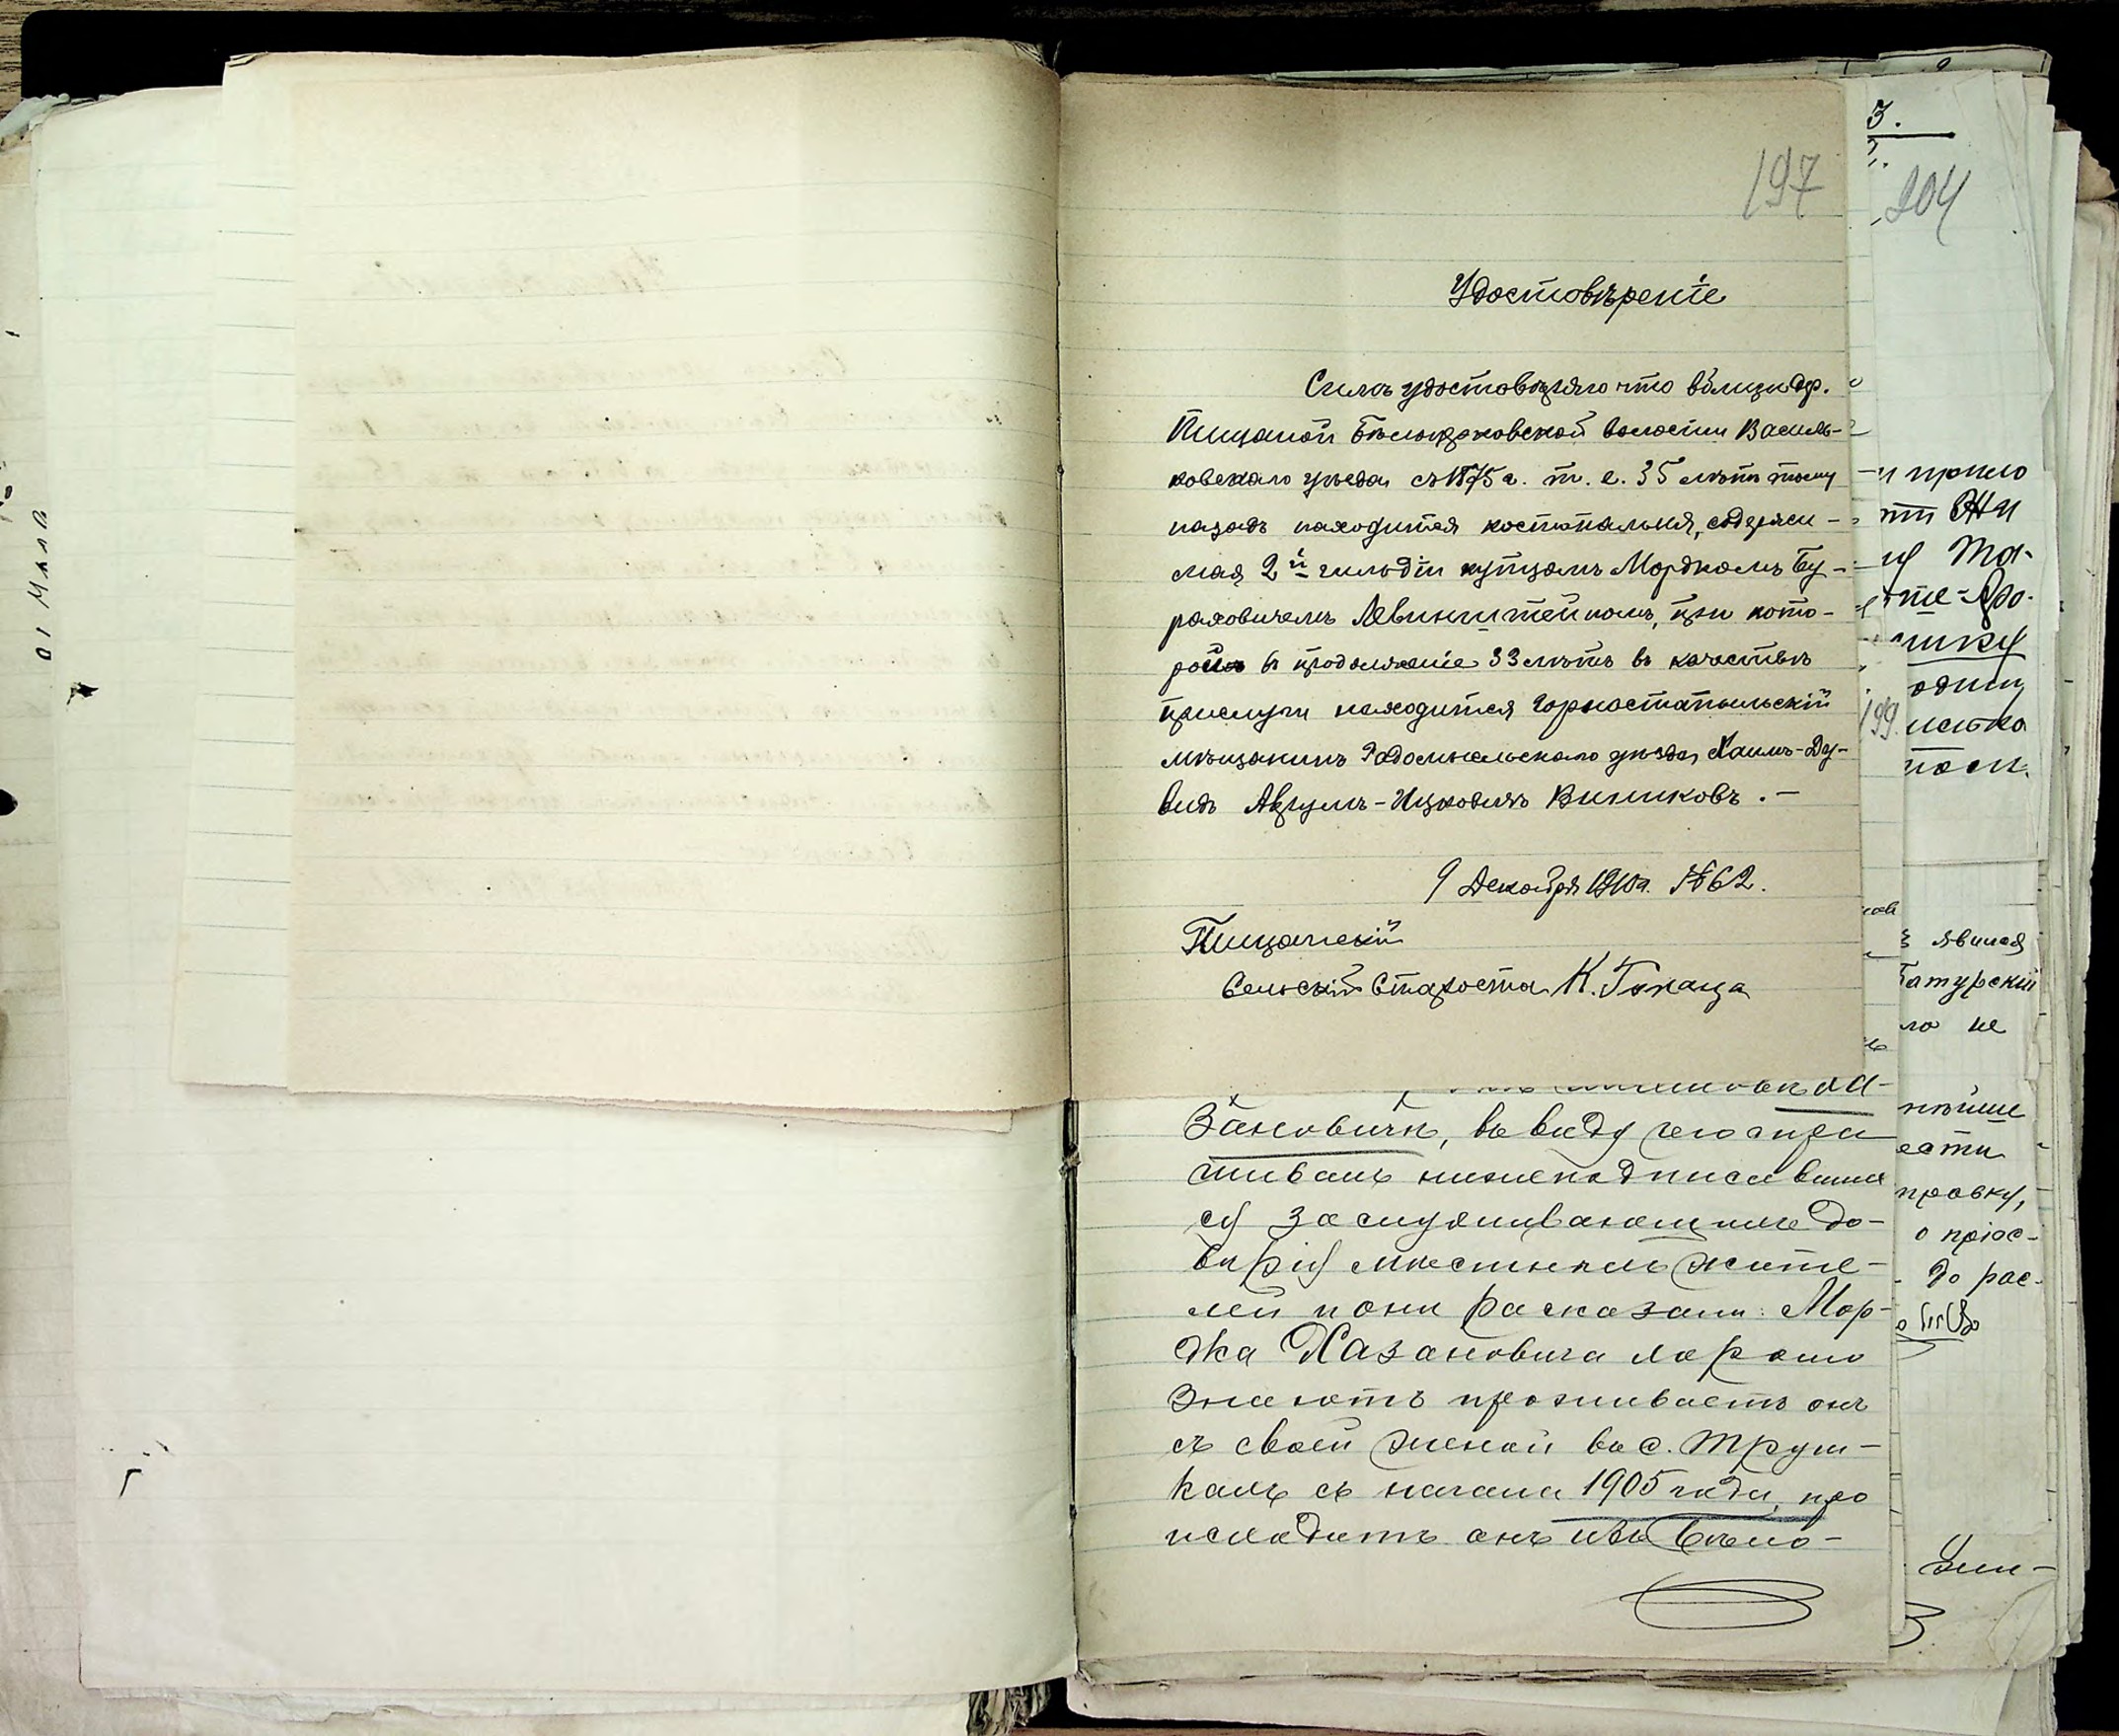 197
Удостовѣреніе
Симъ удостовѣряю что вблизи дер.
Пищаной Бѣлоцерковской волости Василь-
ковскаго уѣзда съ 1875 г. т. е. 35 лѣтъ тому
назадъ находится костопальня, содержи-
мая 2й гильдіи купцомъ Мордкомъ Бу-
раховичемъ Левинштейномъ, при кото-
рой въ продолженіе 33 лѣтъ въ качествѣ
прислуги находится Горностайпольскій
мѣщанинъ Радомысльскаго уѣзда Хаимъ-Ду-
видъ Аврумъ-Ицковичъ Винниковъ. —
9 Декабря 1910 г. № 62.
Пищанскій
Сельскій Староста К.
зановичъ, въ виду чего опра
шивалъ нижеподписавших
ся заслуживающихъ до-
вѣрія мѣстныхъ жите-
лей и они расказали: Мор-
дка Хазановича хорошо
знаютъ проживаетъ онъ
съ своей женой въ с. Труш-
кахъ съ начала 1905 года, про
исходитъ онъ изъ Бѣло-
3.
204
199
одну
явился
ло не
провку,
о пріос-
до рас-